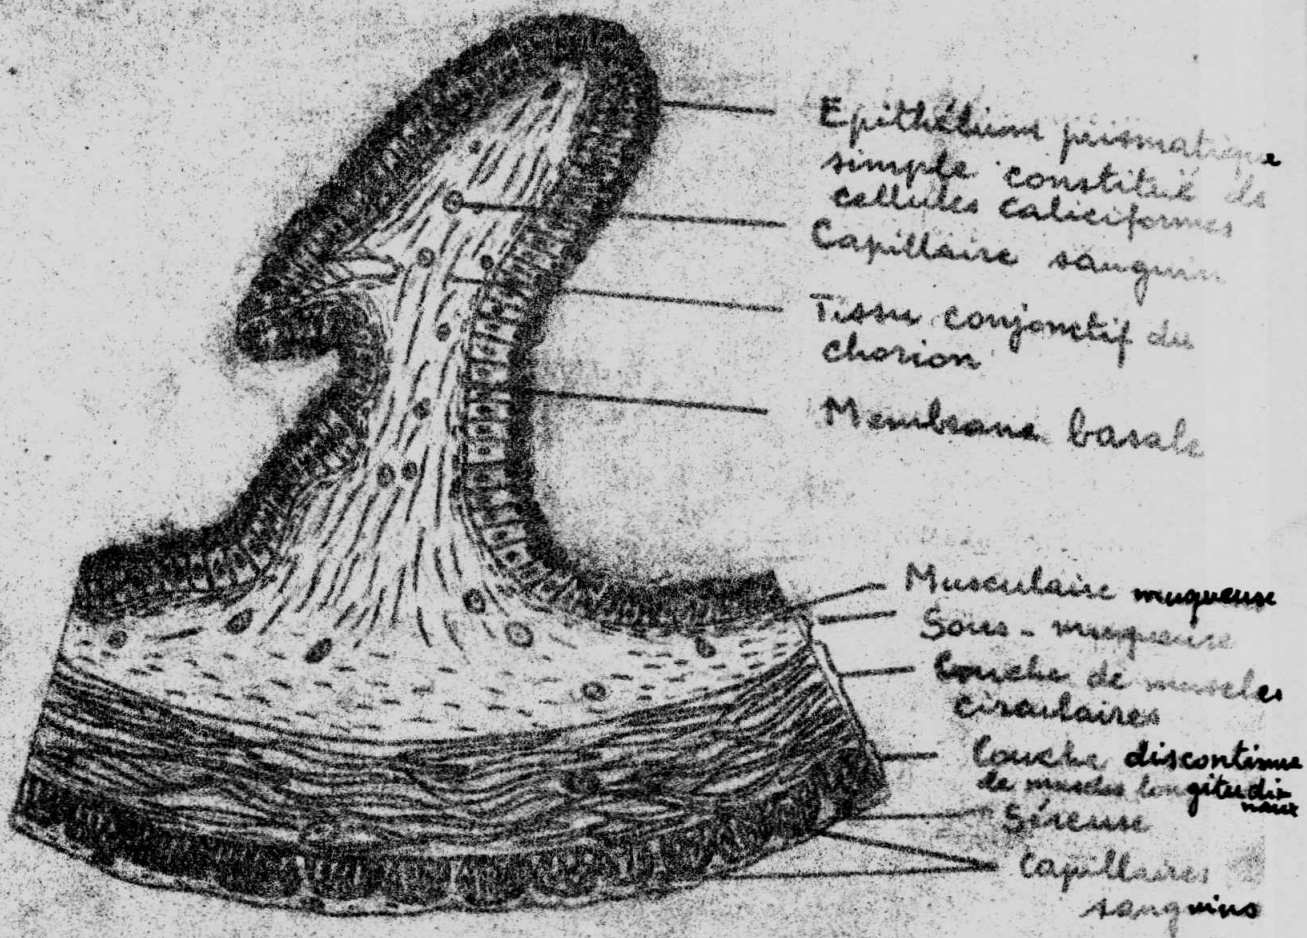 Epithélium prismatique
simple constitué de
cellules caliciformes
Capillaire sanguin
Tissu conjonctif du
chorion
Membrane basale
Musculaire muqueuse
Sous-muqueuse
Couche de muscles
circulaires
Couche discontinue
de muscles longitudi-
naux
Séreuse
Capillaires
sanguins